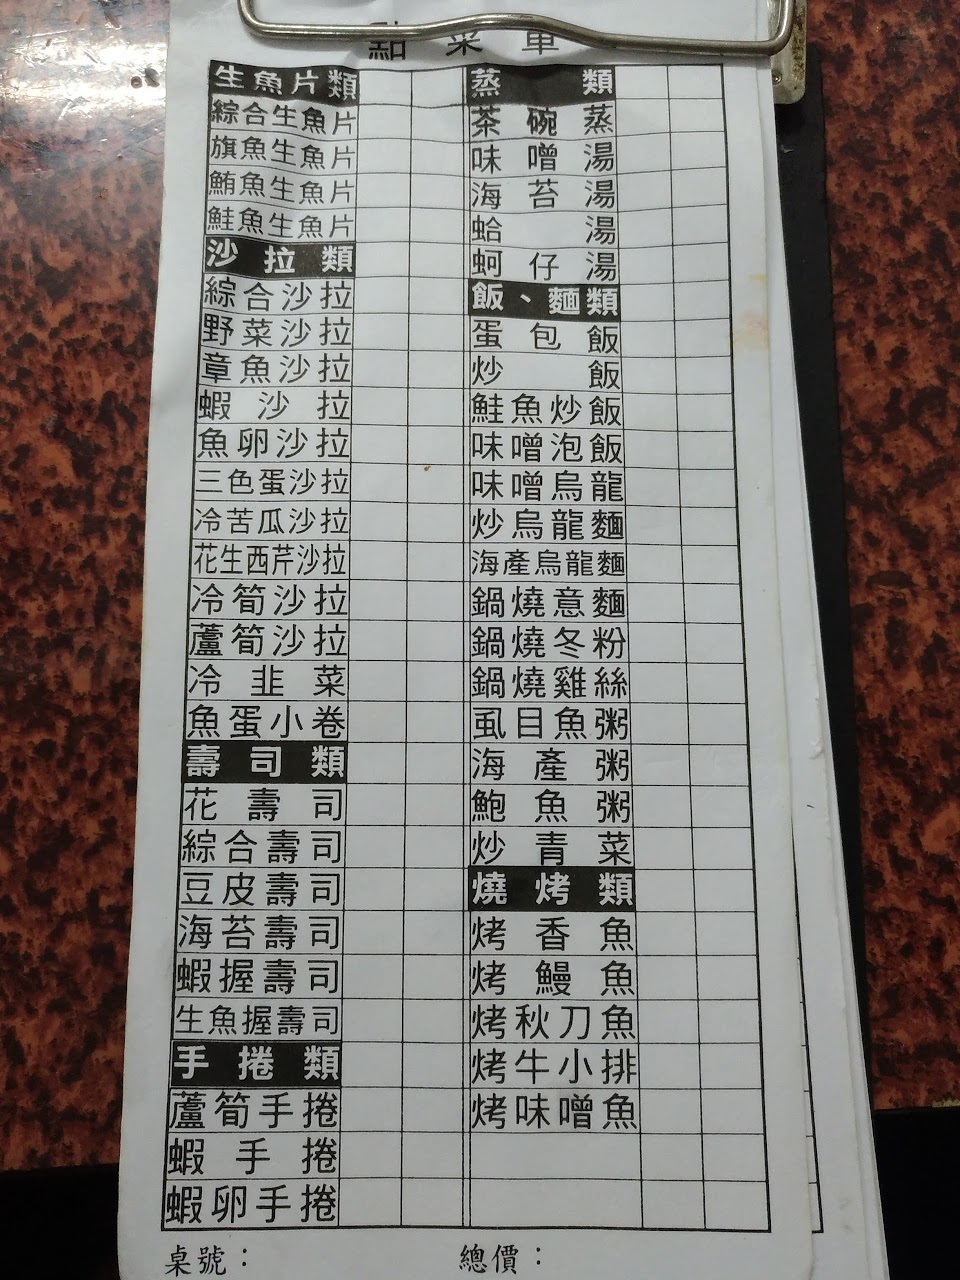 點菜單
生魚片類
綜合生魚片
旗魚生魚片
鮪魚生魚片
鮭魚生魚片
沙拉類
綜合沙拉
野菜沙拉
章魚沙拉
蝦沙拉
魚卵沙拉
三色蛋沙拉
冷苦瓜沙拉
花生西芹沙拉
冷筍沙拉
蘆筍沙拉
冷韭菜
魚蛋小卷
壽司類
花壽司
綜合壽司
豆皮壽司
海苔壽司
蝦握壽司
生魚握壽司
手捲類
蘆筍手捲
蝦手捲
蝦卵手捲
蒸類
茶碗蒸
味噌湯
海苔湯
蛤湯
蚵仔湯
飯、麵類
蛋包飯
炒飯
鮭魚炒飯
味噌泡飯
味噌烏龍
炒烏龍麵
海產烏龍麵
鍋燒意麵
鍋燒冬粉
鍋燒雞絲
虱目魚粥
海產粥
鮑魚粥
炒青菜
燒烤類
烤香魚
烤鰻魚
烤秋刀魚
烤牛小排
烤味噌魚
桌號：
總價：